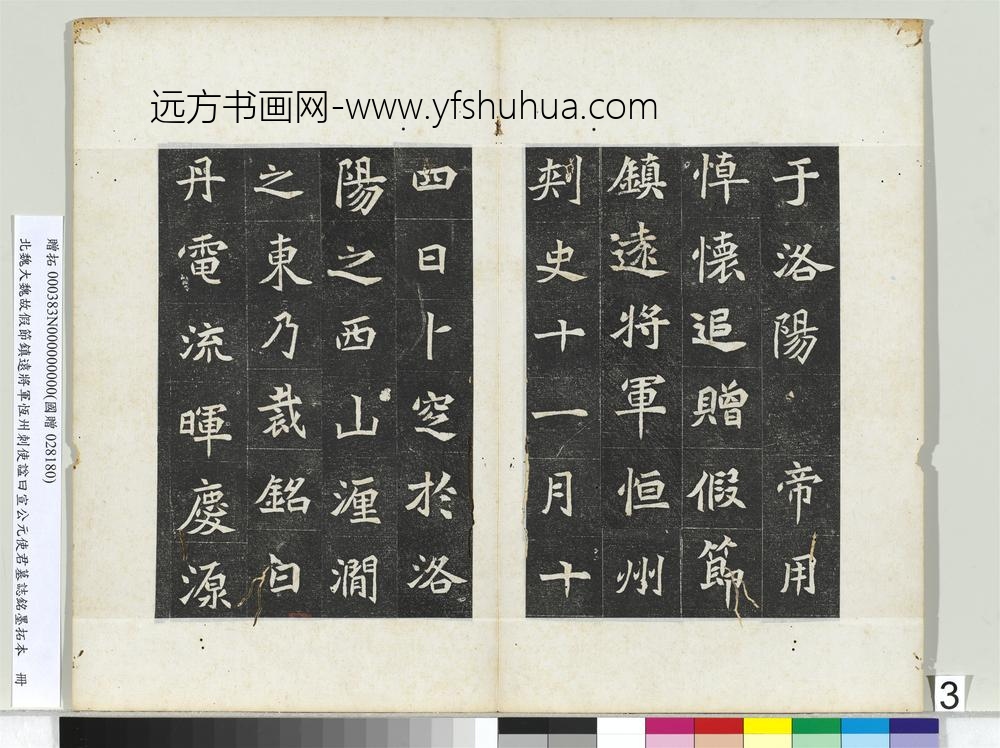 远方书画网-www.yfshuhua.com
于洛陽帝用
悼懐追贈假節
鎮遠將軍恒州
刾史十一月十
四日卜窆於洛
陽之西山瀍澗
之東乃裁銘曰
丹電流暉慶源
贈拓 000383N000000000(國贈 028180)
北魏大魏故假節鎮遠將軍恆州刺使諡曰宣公元使君墓誌銘墨拓本 冊
3